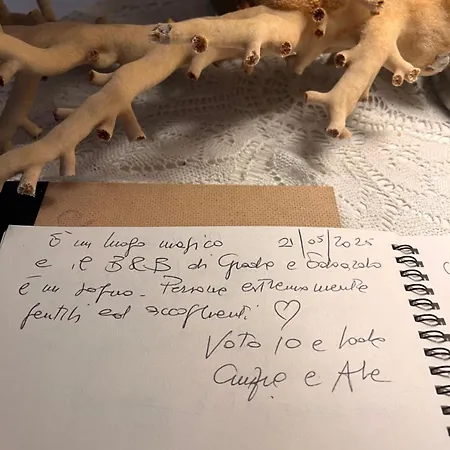 È un luogo magico 21/05/2025
e il B&B di e
è un sogno. Persone estremamente
gentili ed accoglienti ♡
Voto 10 e lode
e Ale